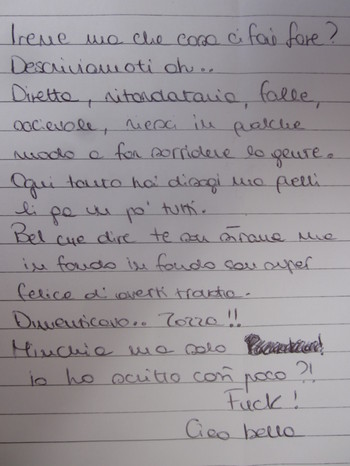 Irene ma che cosa ci fai fare?
Descriviamoti oh..
Diretta, ritardataria, folle,
socievole, riesci in qualche
modo a far sorridere la gente.
Ogni tanto hai disagi ma quelli
li ha un po' tutti.
Bel che dire te sei strana ma
in fondo in fondo son super
felice di averti trovata.
Dimenticavo.. Zozza!!
Minchia ma solo
io ho scritto così poco?!
Fuck!
Ciao bella